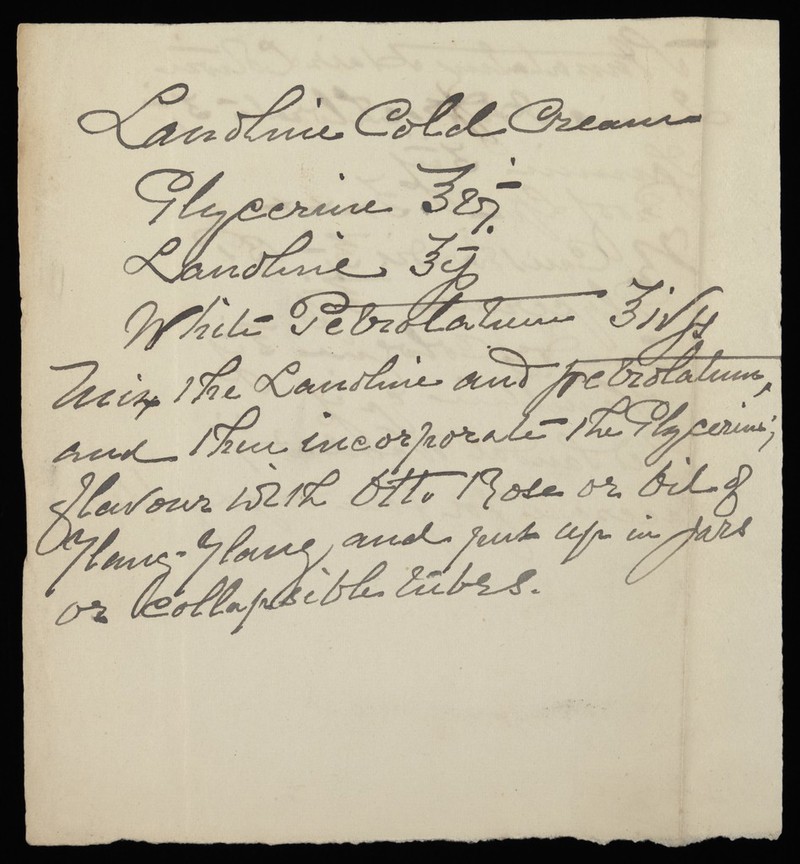 Lanoline Cold Cream
Glycerine ʒvj
Lanoline ℥ij
White Petrolatum ℥ivss
Mix the Lanoline and petrolatum,
and then incorporate the Glycerine;
flavour with Otto Rose or Oil of
Ylang-Ylang, and put up in jars
or collapsible tubes.